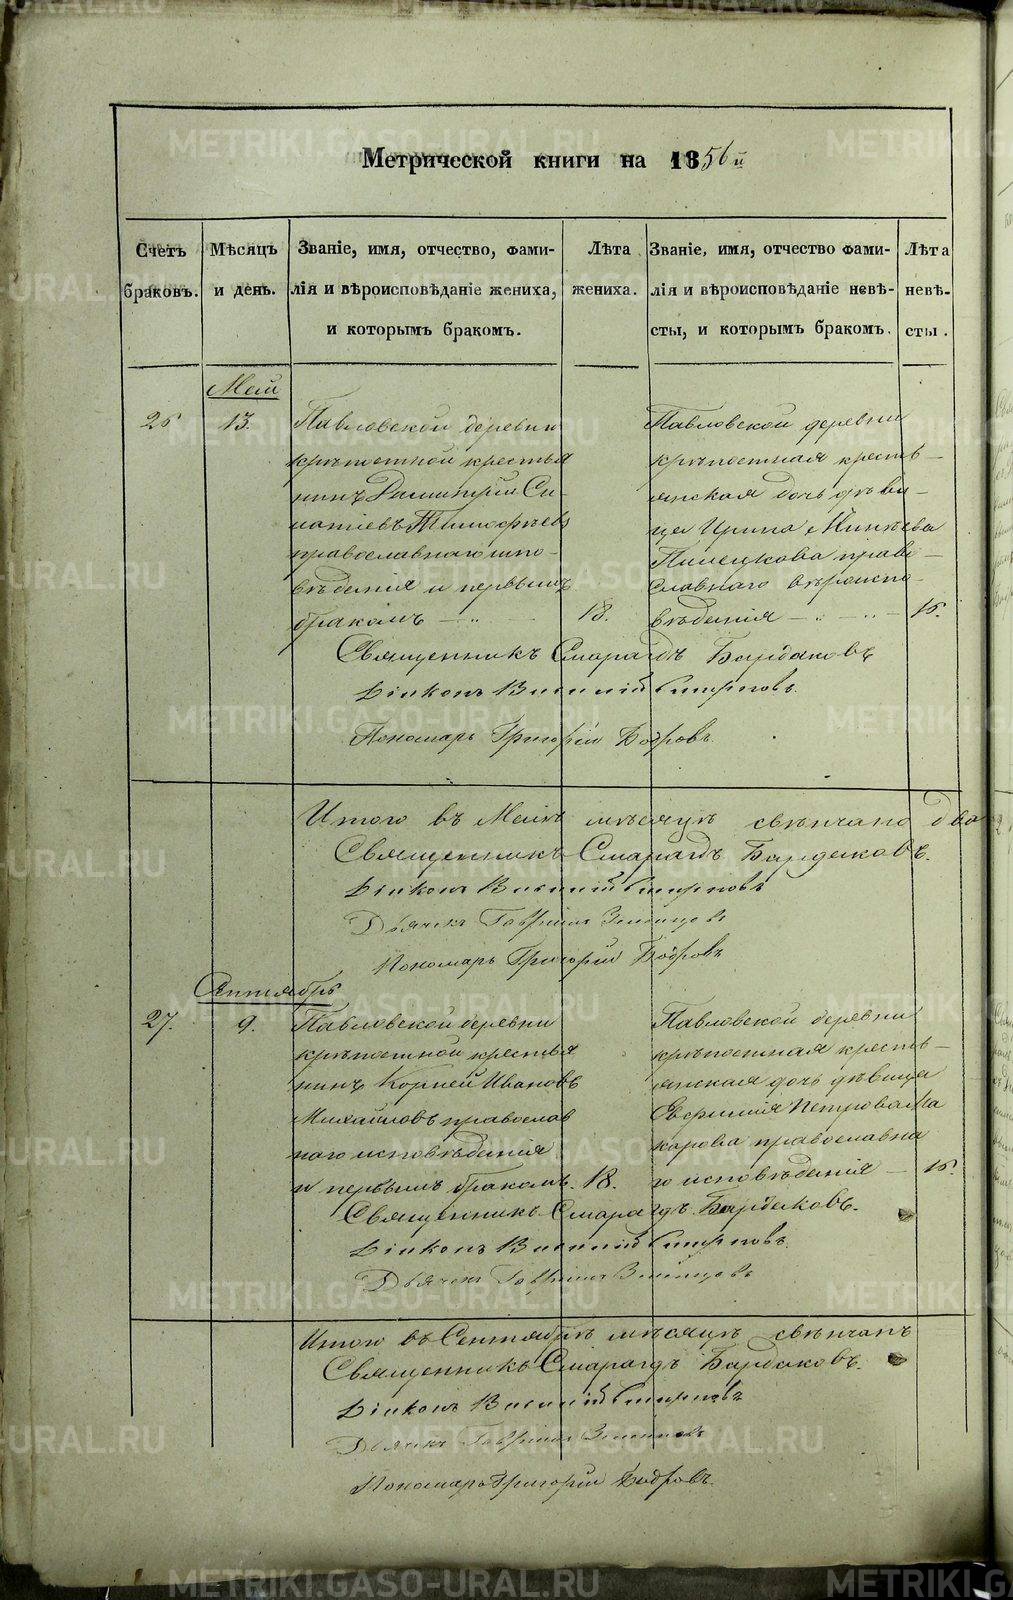 Метрической книги на 1856й
Счетъ браковъ.
Мѣсяцъ и день.
Званіе, имя, отчество, фами-
лія и вѣроисповѣданіе жениха,
и которымъ бракомъ.
Лѣта жениха.
Званіе, имя, отчество фами-
лія и вѣроисповѣданіе невѣ-
сты, и которымъ бракомъ.
Лѣта невѣ-
сты.
Май
26
13.
Павловской деревни
крѣпостной крестья
нинъ Димитрій
Тимофѣевъ
православнаго испо-
вѣданія и первымъ
бракомъ
18.
Павловской деревни
крѣпостная кресть-
янская дочь дѣви-
ца Ирина
право-
славнаго вѣроиспо-
вѣданія
16.
Священникъ Смарагдъ Бардаковъ
Діаконъ Василій Смирновъ
Пономарь Григорій Бобровъ
Итого въ Маѣ мѣсяцѣ свѣнчано два
Священникъ Смарагдъ Бардаковъ.
Діаконъ Василій Смирновъ
Дьячекъ Гавріилъ
Пономарь Григорій Бобровъ
Сентябрь
27.
9.
Павловской деревни
крѣпостной крестья
нинъ Корней Ивановъ
Михайловъ православ
наго исповѣданія
и первымъ бракомъ.
18.
Павловской деревни
крѣпостная кресть-
янская дочь дѣвица
Евфимія Петрова Ма
карова православна
го исповѣданія
16.
Священникъ Смарагдъ Бардаковъ.
Діаконъ Василій Смирновъ.
Дьячекъ Гавріилъ
Итого въ Сентябрѣ мѣсяцѣ свѣнчанъ
Священникъ Смарагдъ Бардаковъ.
Діаконъ Василій Смирновъ
Дьячекъ Гавріилъ
Пономарь Григорій Бобровъ.
METRIKI.GASO-URAL.RU